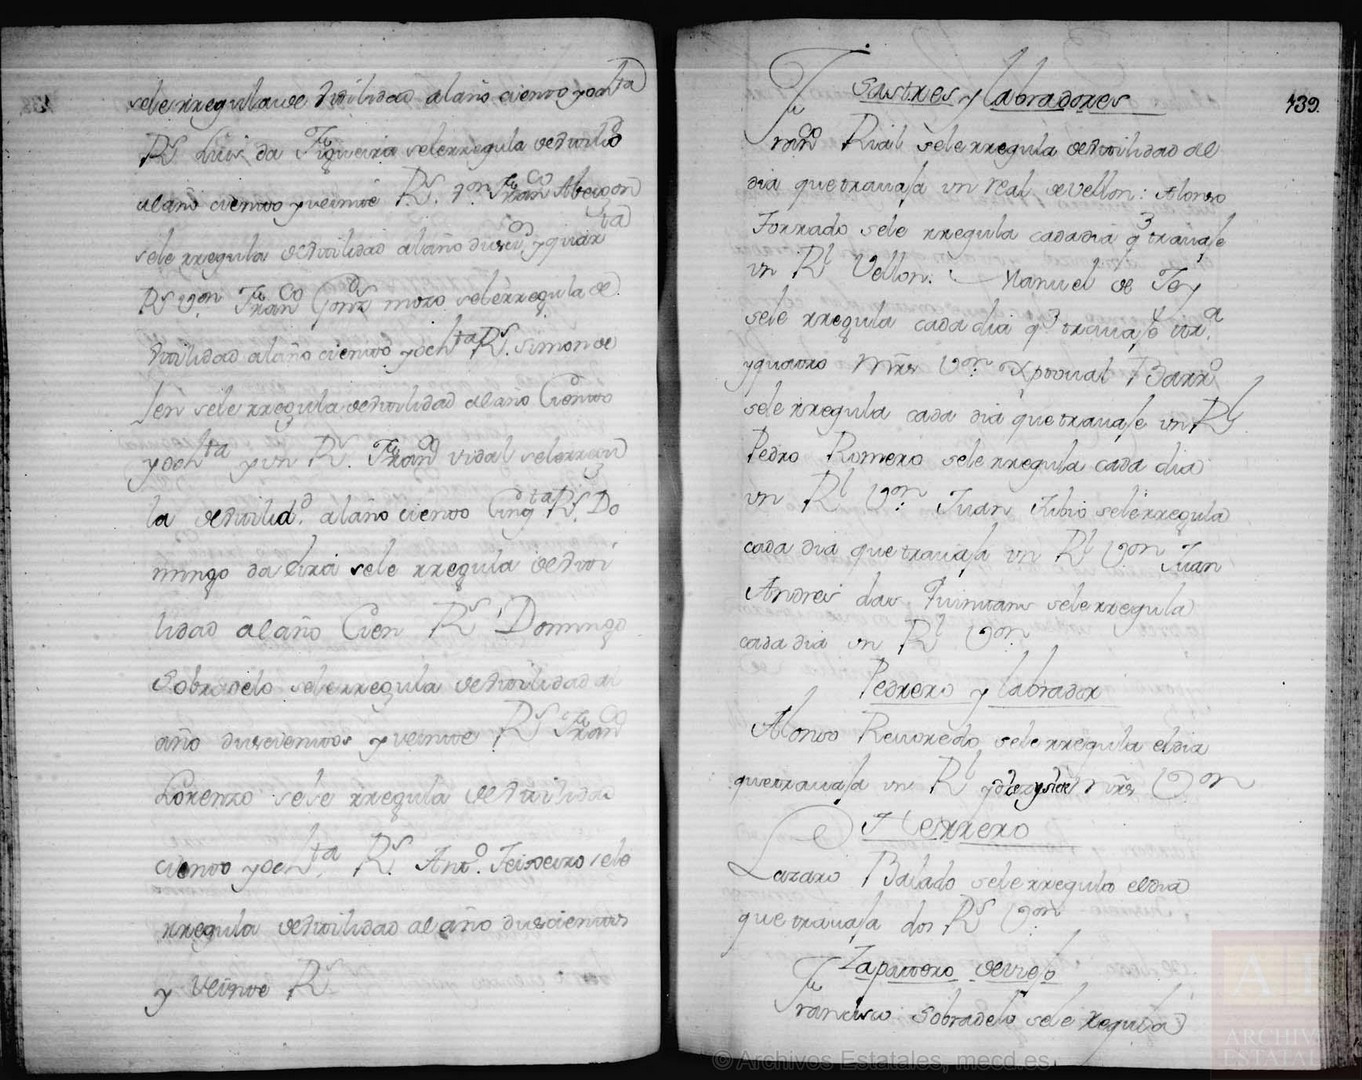 sele rregula de Utilidad al año ciento yochta
Rs Luis da Figueira sele rregula de utilidd
al año ciento y veinte Rs. Von. Franco
sele rregula de Utilidad al año
Rs Von Franco Gonz mozo sele rregula de
Utilidad al año ciento yochta Rs. Simon de
Jen sele rregula de Utilidad al año Ciento
yochta y un Rs. Franco Vidal sele rreu
la de Utilidd. al año ciento Cinqta Rs. Do
mingo da Lira sele rregula de Uti
lidad al año Cien Rs Domingo
Sobradelo sele rregula de Utilidad al
año duscientos y veinte Rs Franco
Lorenzo sele rregula de Utilidad
ciento yochta Rs. Anto. Teixeiro sele
rregula de Utilidad al año duscientos
y veinte Rs
139.
Sastres y Labradores
Franco Rial sele rregula de Utilidad al
dia que trauaja un real de Vellon: Alonso
Forrado sele rregula cada dia q trauaje
un Rl Vellon. Manuel de
sele rregula cada dia q trauaje
y quatro mrs Von Xptoual Barro
sele rregula cada dia que trauaje un Rl
Pedro Romero sele rregula cada dia
un Rl Von Juan sele rregula
cada dia que trauaja un Rl Von Juan
Andres das Quintans sele rregula
cada dia un Rl Von
Pedrero y labrador
Alonso Reuoredo sele rregula el dia
que trauaja un Rl y diez y siete mrs Von
Herrero
Lazaro Balado sele rregula el dia
que trauaja dos Rs Von
Zapattero de viejo
Francisco Sobradelo sele Regula
© Archivos Estatales, mecd.es
ARCHIVOS
ESTATALES